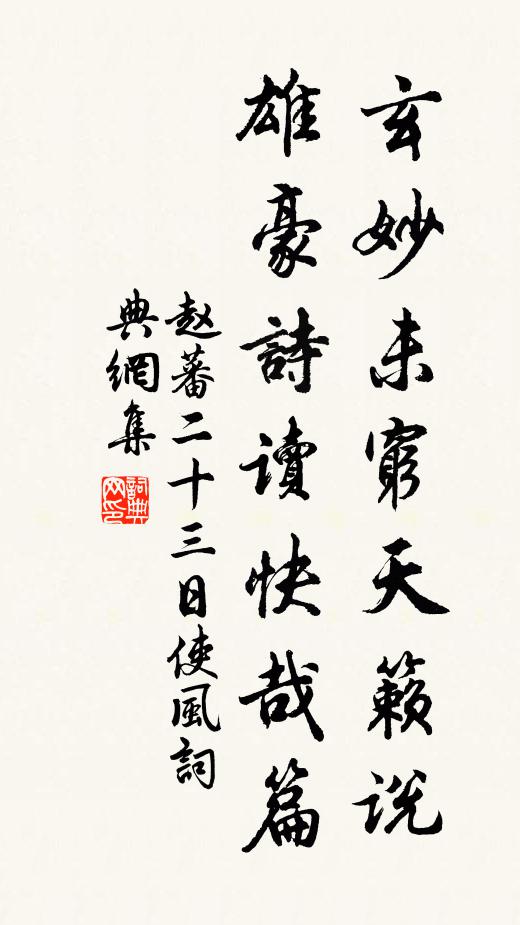 玄妙未窮天籟説
雄豪詩讀快哉篇
赵蕃二十三日使風詞
典網集
詞典网印